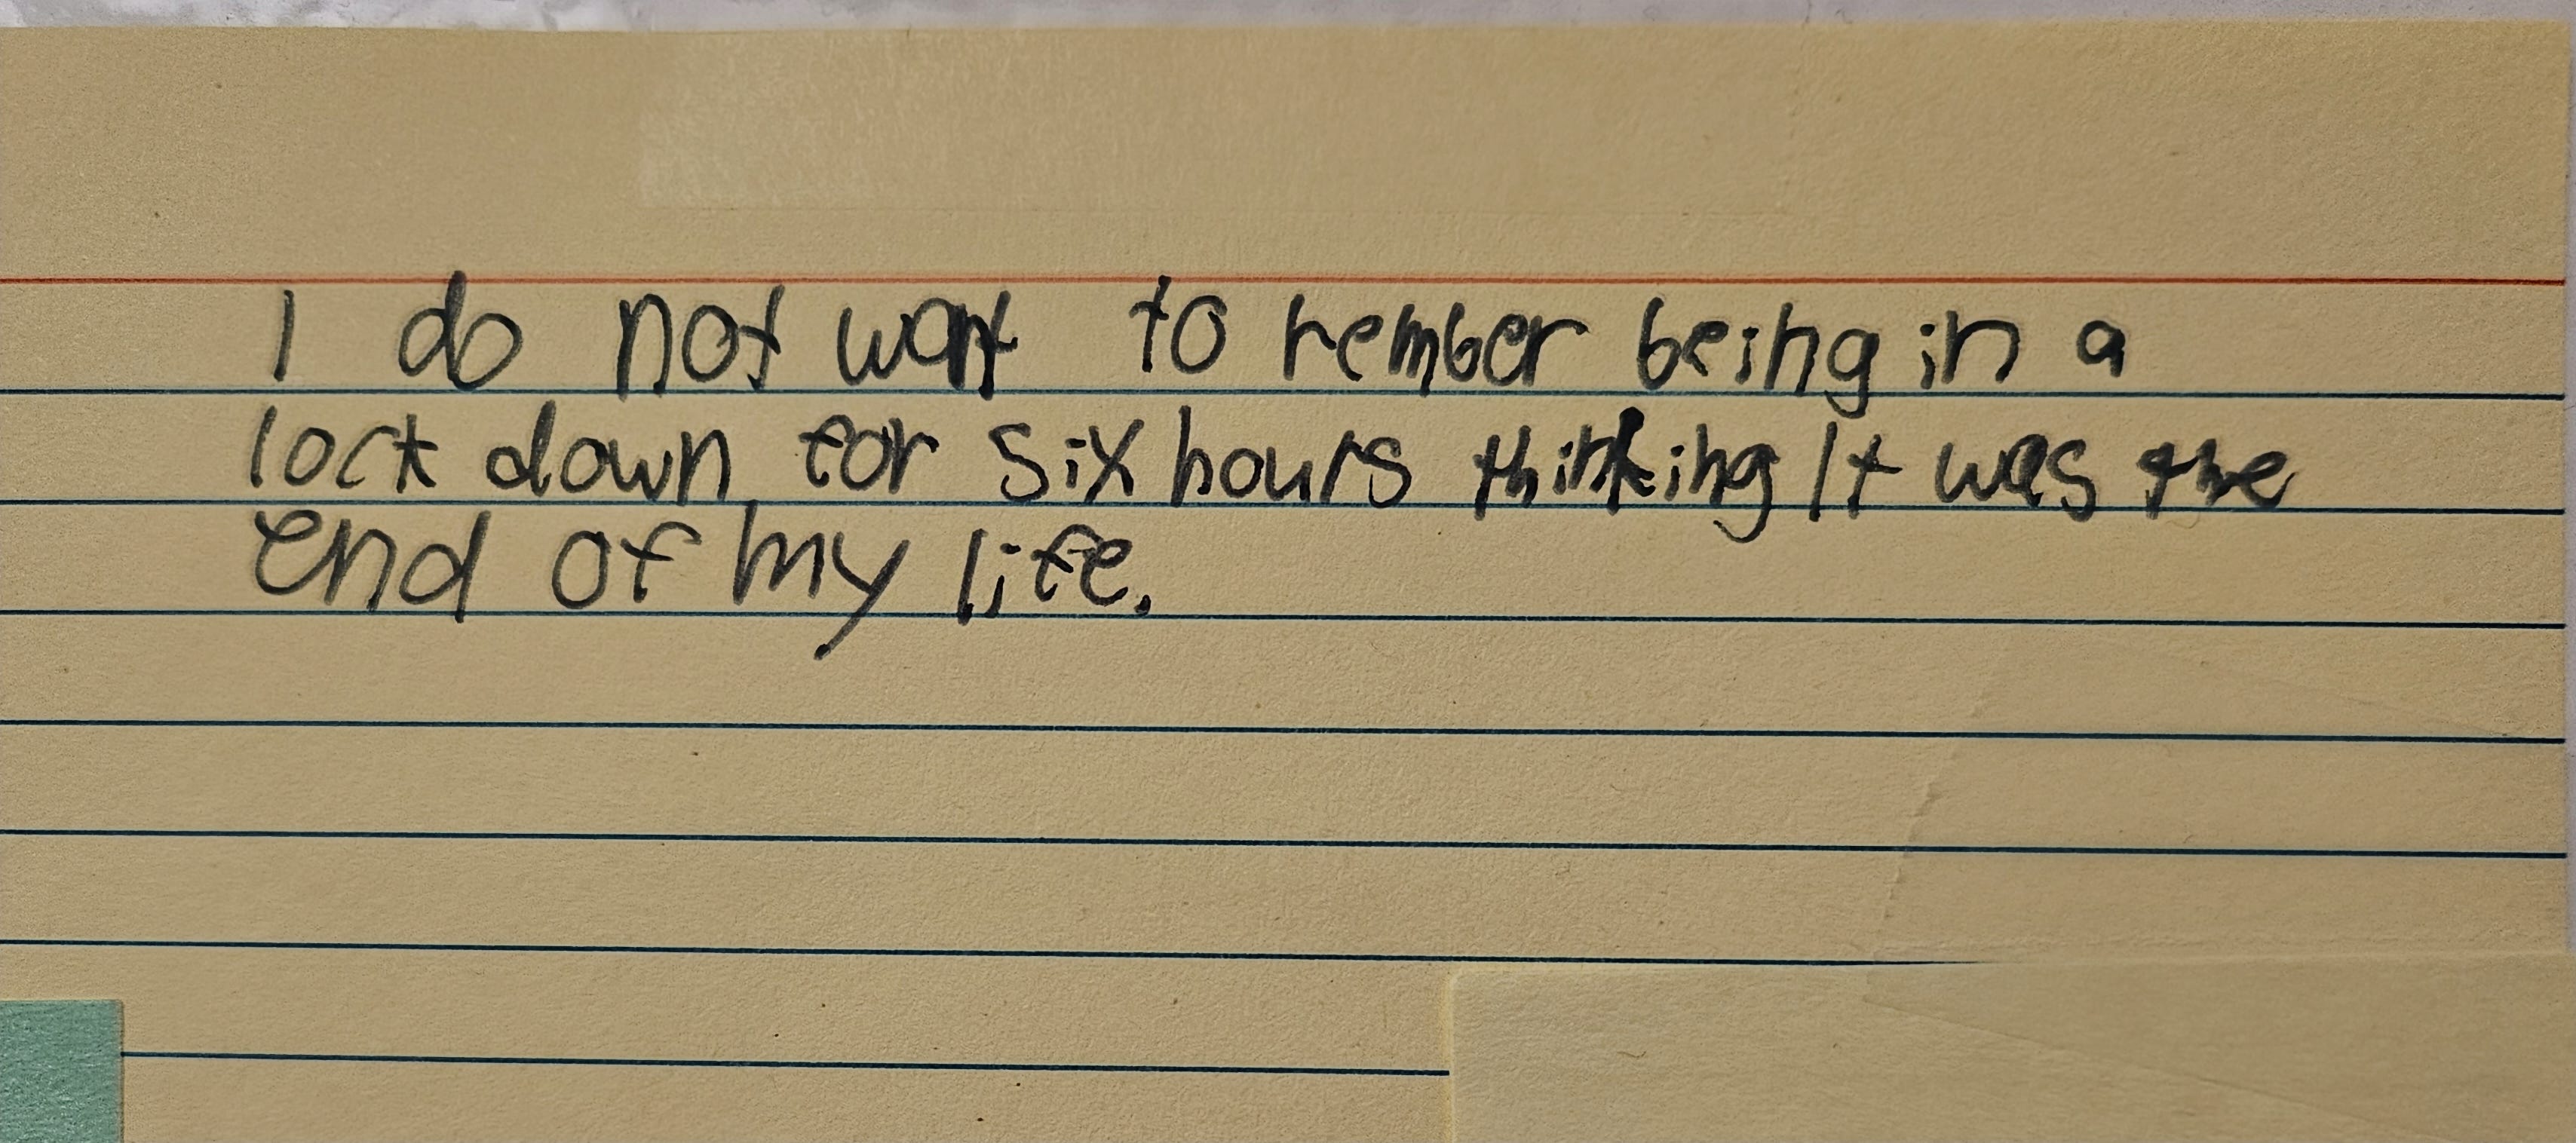 I do not want to rember being in a
lock down for six hours thinking It was the
end of my life.